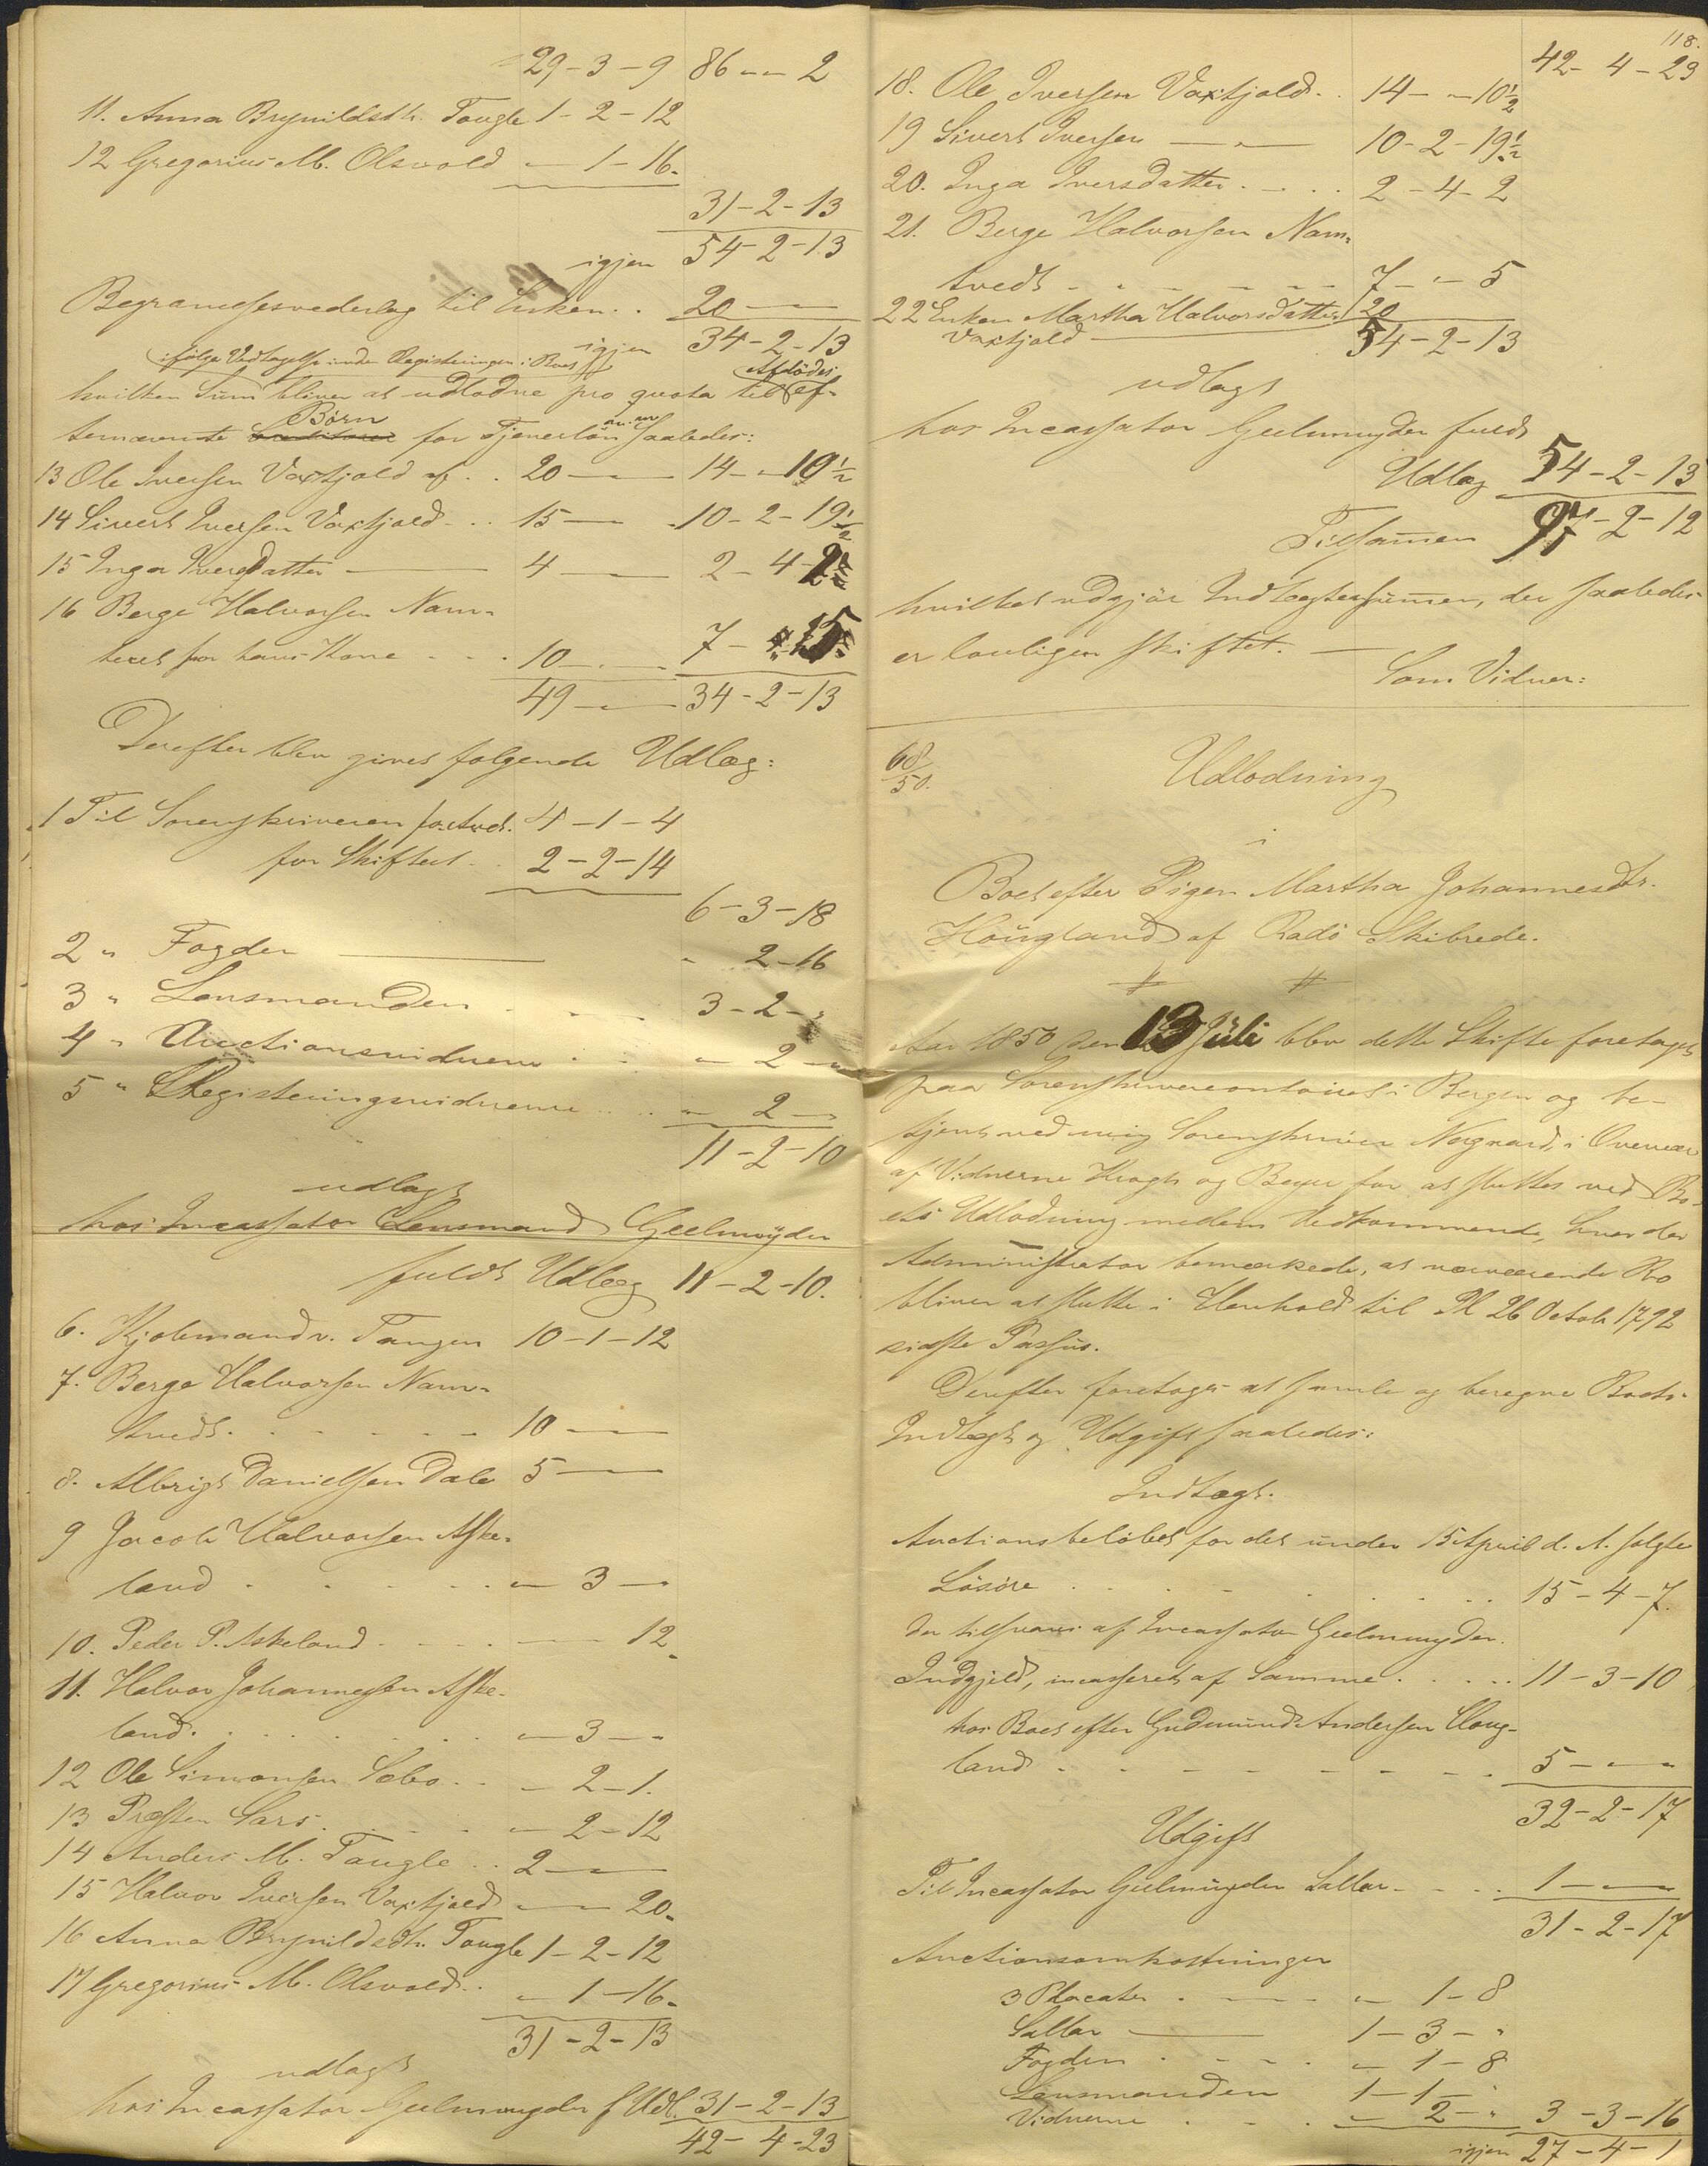 29-3-9 86 - - 2
11. Anna Brynildsdtr. Tougle 1-2-12
12 Gregorius M. Olsvold - 1-16.
31-2-13
igjen 54-2-13
Begravelsesvederlag til Enken. . 20 - -
igjen 34-2-13
ifølge Vedtagelse under Registeringen i Boet
hvilken Sum bliver at udlodne pro qvota til Afdødes ef-
ternævnte Børn for Tjenerløn saaledes:
13 Ole Iversen Vaxtjold af . . 20 - - 14 - - 19½
14 Sivert Iversen Vaxtjold . . 15 - - 10-2-19½
15 Inga Iversdatter - 4 - - 2-4-2
16 Berge Halvorsen Nam-
tvedt for hans Kone . . . 10 - - 7 - - 5
49 - - 34-2-13
Derefter blev givet følgende Udlæg:
1 Til Sorenskriveren for Auct. 4-1-4
for Skiftet . . 2-2-14
6-3-18
2 " Fogden - " 2-16
3 " Lensmanden . . . 3-2-"
4 " Auctionsvidnerne . . . - 2 -
5 " Registeringsvidnerne . . . - 2 -
11-2-10
udlagt
hos Incassator Lensmand Geelmuyden
fuldt Udlæg 11-2-10.
6. Kjøbmand v. Tangen 10-1-12
7. Berge Halvorsen Nam-
tvedt . . . . . 10 - -
8. Albrigt Danielsen Dale 5 - -
9 Jacob Halvorsen Aske-
land . . . . . . - 3 -
10. Peder P. Askeland . . . . - - 12.
11. Halvor Johannesen Aske-
land . . . . . . - 3 - -
12 Ole Simonsen Sæbo . . - 2-1.
13 Præsten Sars . . . . - 2-12
14 Anders M. Tougle . . 2 - -
15 Halvor Iversen Vaxtjold - - 20.
16 Anna Brynildsdtr. Tougle 1-2-12
17 Gregorius M. Olsvold . . - 1-16.
31-2-13
udlagt
hos Incassator Geelmuyden f Udl. 31-2-13
42-4-23
118.
42-4-23
18. Ole Iversen Vaxtjold . . 14 - - 10½
19 Sivert Iversen - " - 10-2-19½
20. Inga Iversdatter . . . . 2-4-2
21. Berge Halvorsen Nam-
tvedt . . . . . . 7 - " - 5
22 Enken Martha Halvorsdatter 20
Vaxtjold - 54-2-13
udlagt
hos Incassator Geelmuyden fuldt
Udlæg 54-2-13
Tilsammen 97-2-12
hvilket udgjør Indtægtessummen, der saaledes
er lovligen skiftet. -
Som Vidner:
68/50.
Udlodning
i
Boet efter Pigen Martha Johannesdtr.
Hougland af Radø Skibrede.
Aar 1850 den 13 Juli blev dette Skifte foretaget
paa Sorenskrivercontoiret i Bergen og be-
tjent ved mig Sorenskriver Nørgaard, i Overvær
af Vidnerne Krogh og Beyer for at sluttes ved Bo-
ets Udlodning mellem Vedkommende, hvorder
Administrator bemærkede, at nærværende Bo
bliver at slutte i Henhold til Pl 26 Octob 1792
sidste Passus.
Derefter foretoges at samle og beregne Boets
Indtægt og Udgift saaledes:
Indtægt.
Auctionsbeløbet for det under 15 April d. A. solgte
Løsøre . . . . . . . 15-4-7.
der tilsvares af Incassator Geelmuyden.
Indgjeld, incasseret af Samme . . . . . 11-3-10
hos Boet efter Gudmund Andersen Houg-
land . . . . . . . . 5 - - -
32-2-17
Udgift
Til Incassator Geelmuyden Sallar . . . . 1 - -
31-2-17
Auctionsomkostninger
3 Placater . - - - 1-8
Sallar - 1-3-"
Fogden . . . . - 1-8
Lensmanden 1-1-"
Vidnerne . . . - 2-" 3-3-16
igjen 27-4-1